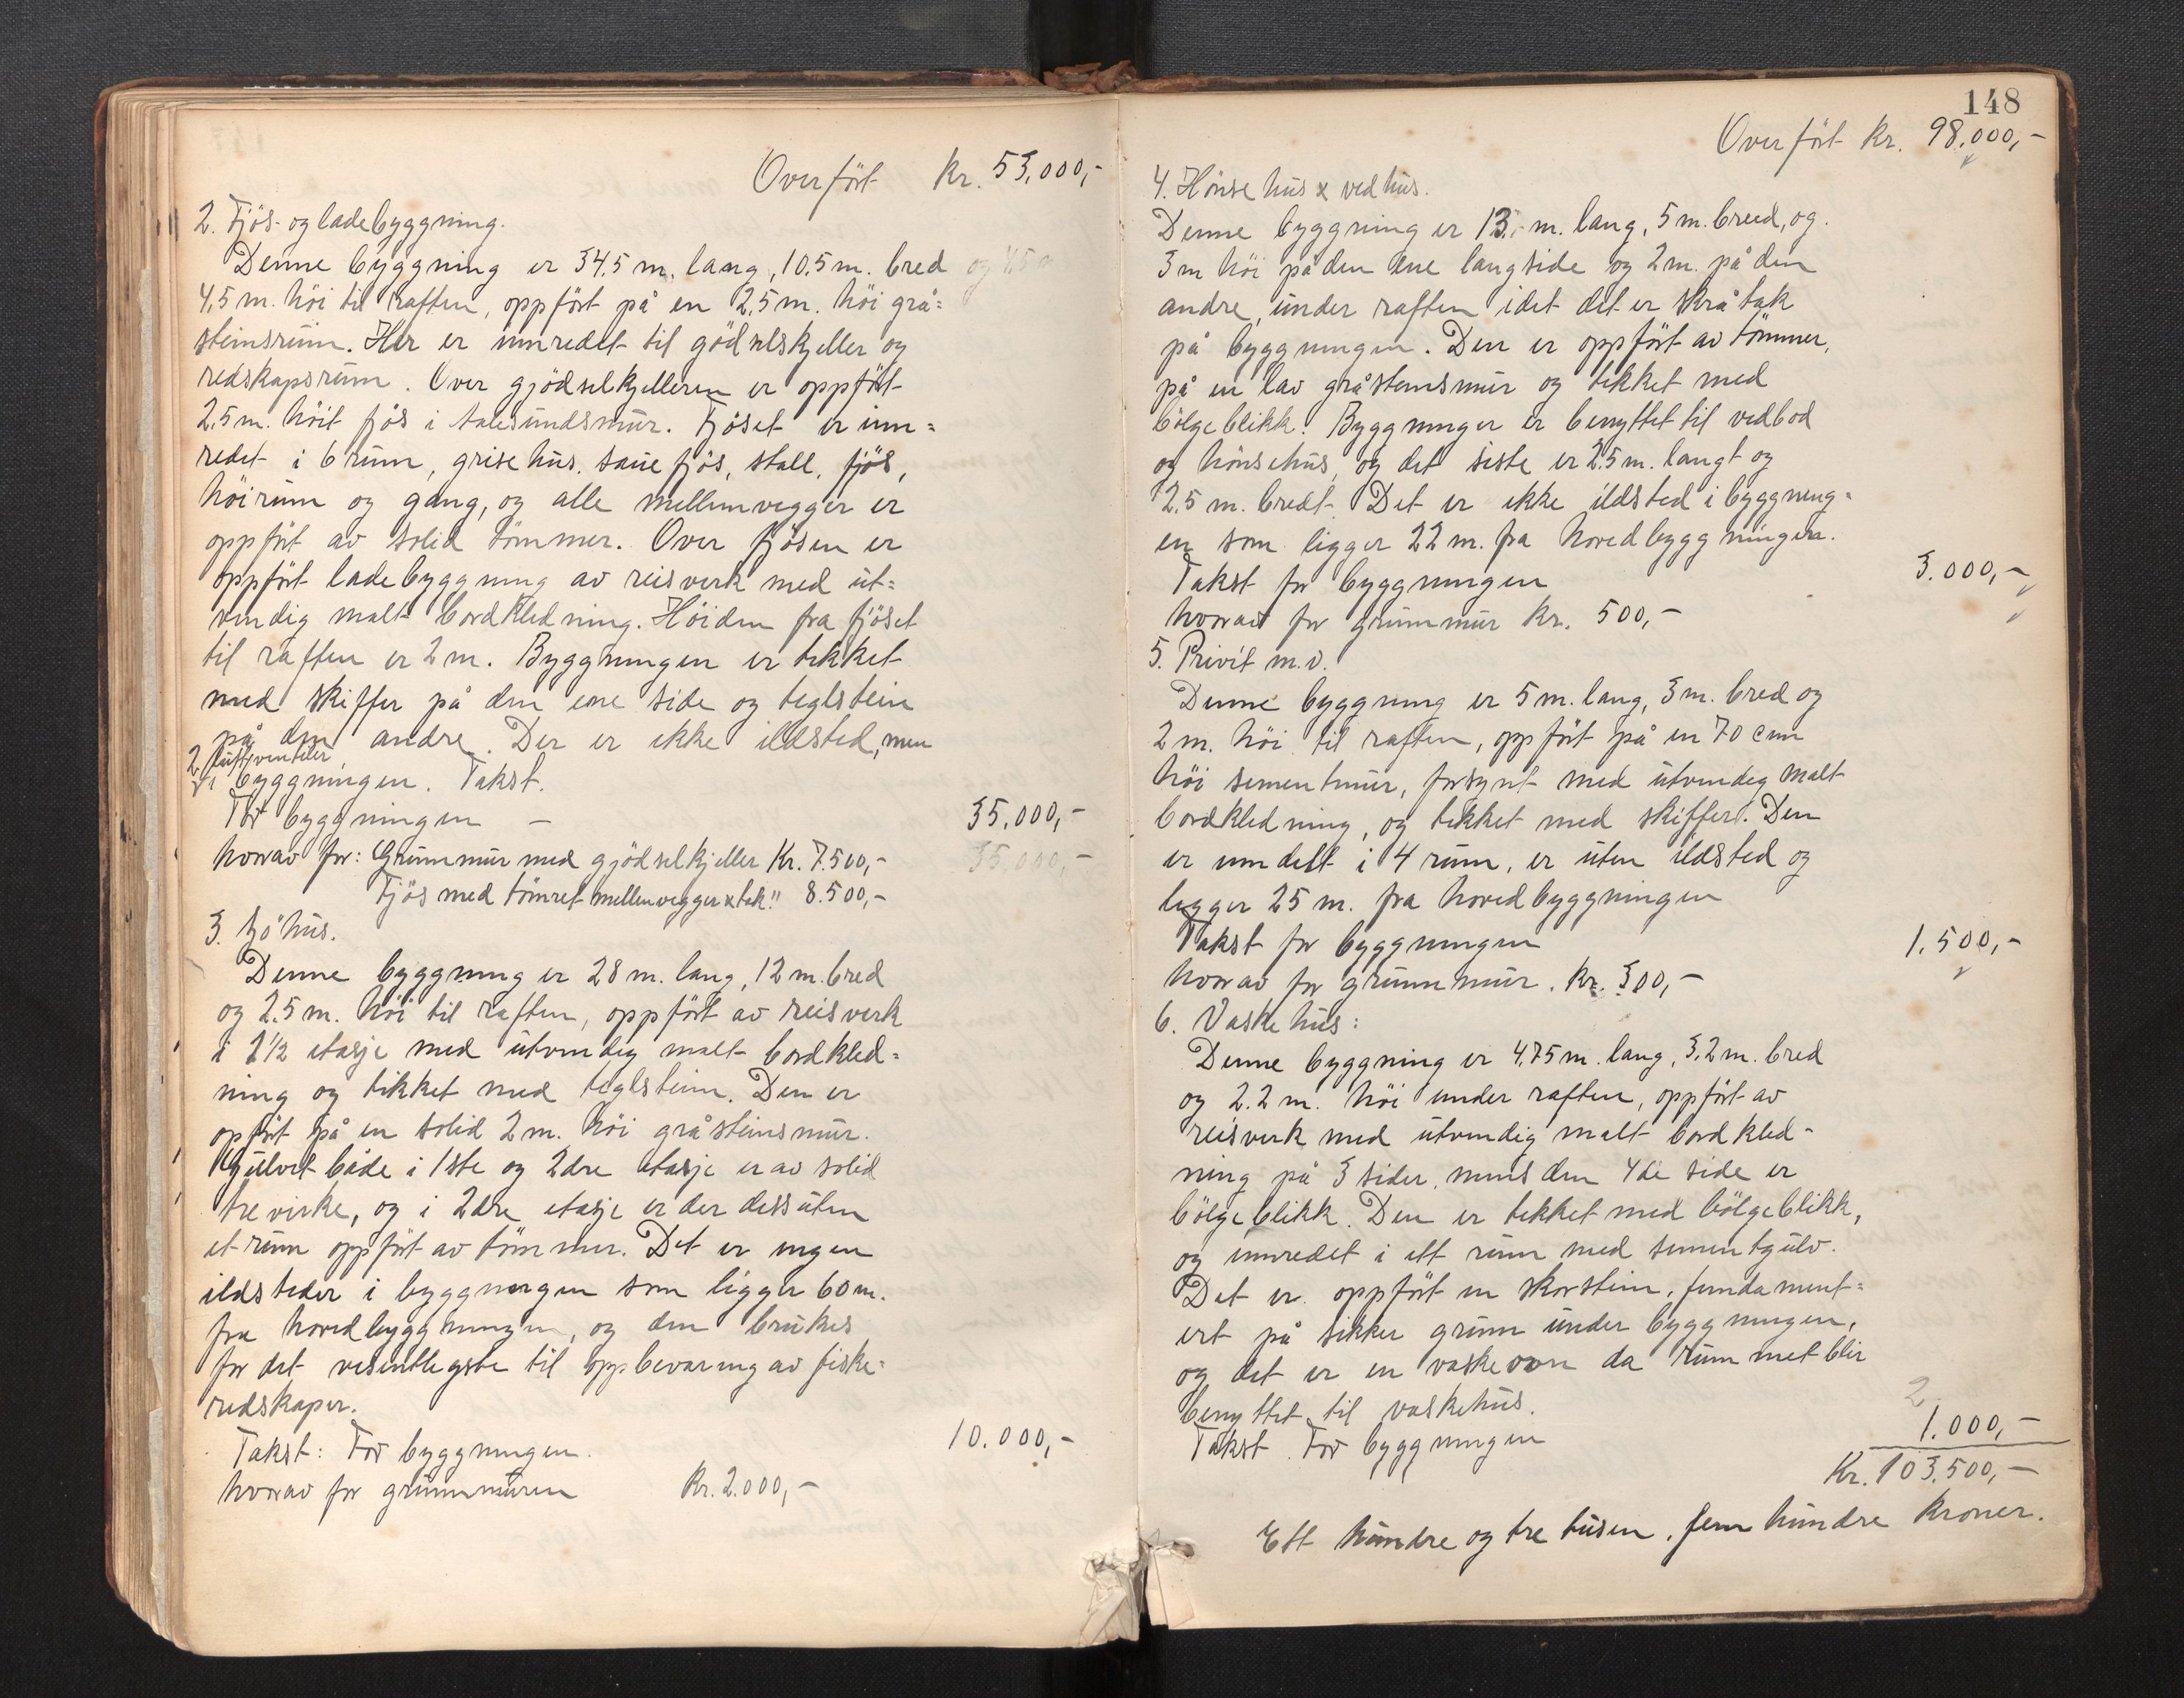 Overført Kr. 53,000,-
2. Fjøs- og ladebyggning.
Denne byggning er 34.5 m. lang, 10.5 m. bred
4,5 m. høi til raften, oppført på en 2,5 m. høi grå=
steinsrum. Her er innredet til gjødselskjeller og
redskapsrum. Over gjødselkjelleren er oppført
2,5 m. høit fjøs i Aalesundsmur. Fjøset er inn=
redet i 6 rum, grisehus, sauefjøs, stall, fjøs,
høirum og gang, og alle mellemvegger er
oppført av solid tømmer. Over fjøsen er
oppført ladebyggning av reisverk med ut=
vendig malt bordkledning. Høiden fra fjøset
til raften er 2 m. Byggningen er tekket
med skiffer på den ene side og teglstein
på den andre. Der er ikke ildsted, men
2 luftventiler
i byggningen. Takst.
For byggningen - 35.000,-
hvorav for: Grunnmur med gjødselkjeller Kr. 7.500,-
Fjøs med tømret mellemvegger & tak " 8.500,-
3. Sjøhus.
Denne byggning er 28 m. lang, 12 m. bred
og 2.5 m. høi til raften, oppført av reisverk
i 1 1/2 etasje med utvendig malt bordkled=
ning og tekket med teglstein. Den er
opført på en solid 2 m. høi gråsteinsmur.
Gulvet både i 1ste og 2dre etasje er av solid
trevirke, og i 2dre etasje er der dessuten
et rum oppført av tømmer. Det er ingen
ildsteder i byggningen som ligger 60 m.
fra hovedbyggningen, og den brukes
for det vesentlegste til oppbevaring av fiske=
redskaper.
Takst: For byggningen. 10.000,-
hvorav for grunnmuren Kr. 2.000,-
148
Overført Kr. 98.000,-
4. Hønsehus & vedhus.
Denne byggning er 13,- m. lang, 5 m. breed, og
3 m høi på den ene langside og 2 m. på den
andre, under raften idet det er skråtak
på byggningen. Den er oppført av tømmer,
på en lav gråsteinsmur og tekket med
bølgeblikk. Byggningen er benyttet til vedbod
og hønsehus, og det siste er 2.5 m. langt og
2.5 m. bredt. Det er ikke ildsted i byggning=
en som ligger 22 m. fra hovedbyggningen.
Takst for byggningen 3.000,-
hvorav for grunnmur Kr. 500,-
5. Privét m.v.
Denne byggning er 5 m. lang, 3 m. bred og
2 m. høi til raften, oppført på en 70 cm
høi sementmur, forsynt med utvendig malt
bordkledning, og tekket med skiffer. Den
er inndelt i 4 rum, er uten ildsted og
ligger 25 m. fra hovedbyggningen
Takst for byggningen 1.500,-
hvorav for grunnmur. Kr. 300,-
6. Vaskehus:
Denne byggning er 4,75 m. lang, 3,2 m. bred
og 2.2 m. høi under raften, oppført av
reisverk med utvendig malt bordkled-
ning på 3 sider, mens den 4de side er
bølgeblikk. Den er tekket med bølgeblikk,
og innredet i ett rum med sementgulv.
Det er oppført en skorstein, fundament=
ert på sikker grunn under byggningen,
og det er en vaskeovn da rummet blir
benyttet til vaskehus. 2
Takst. For byggningen 1.000,-
Kr. 103.500,-
Ett hundre og tre tusen, fem hundre kroner.